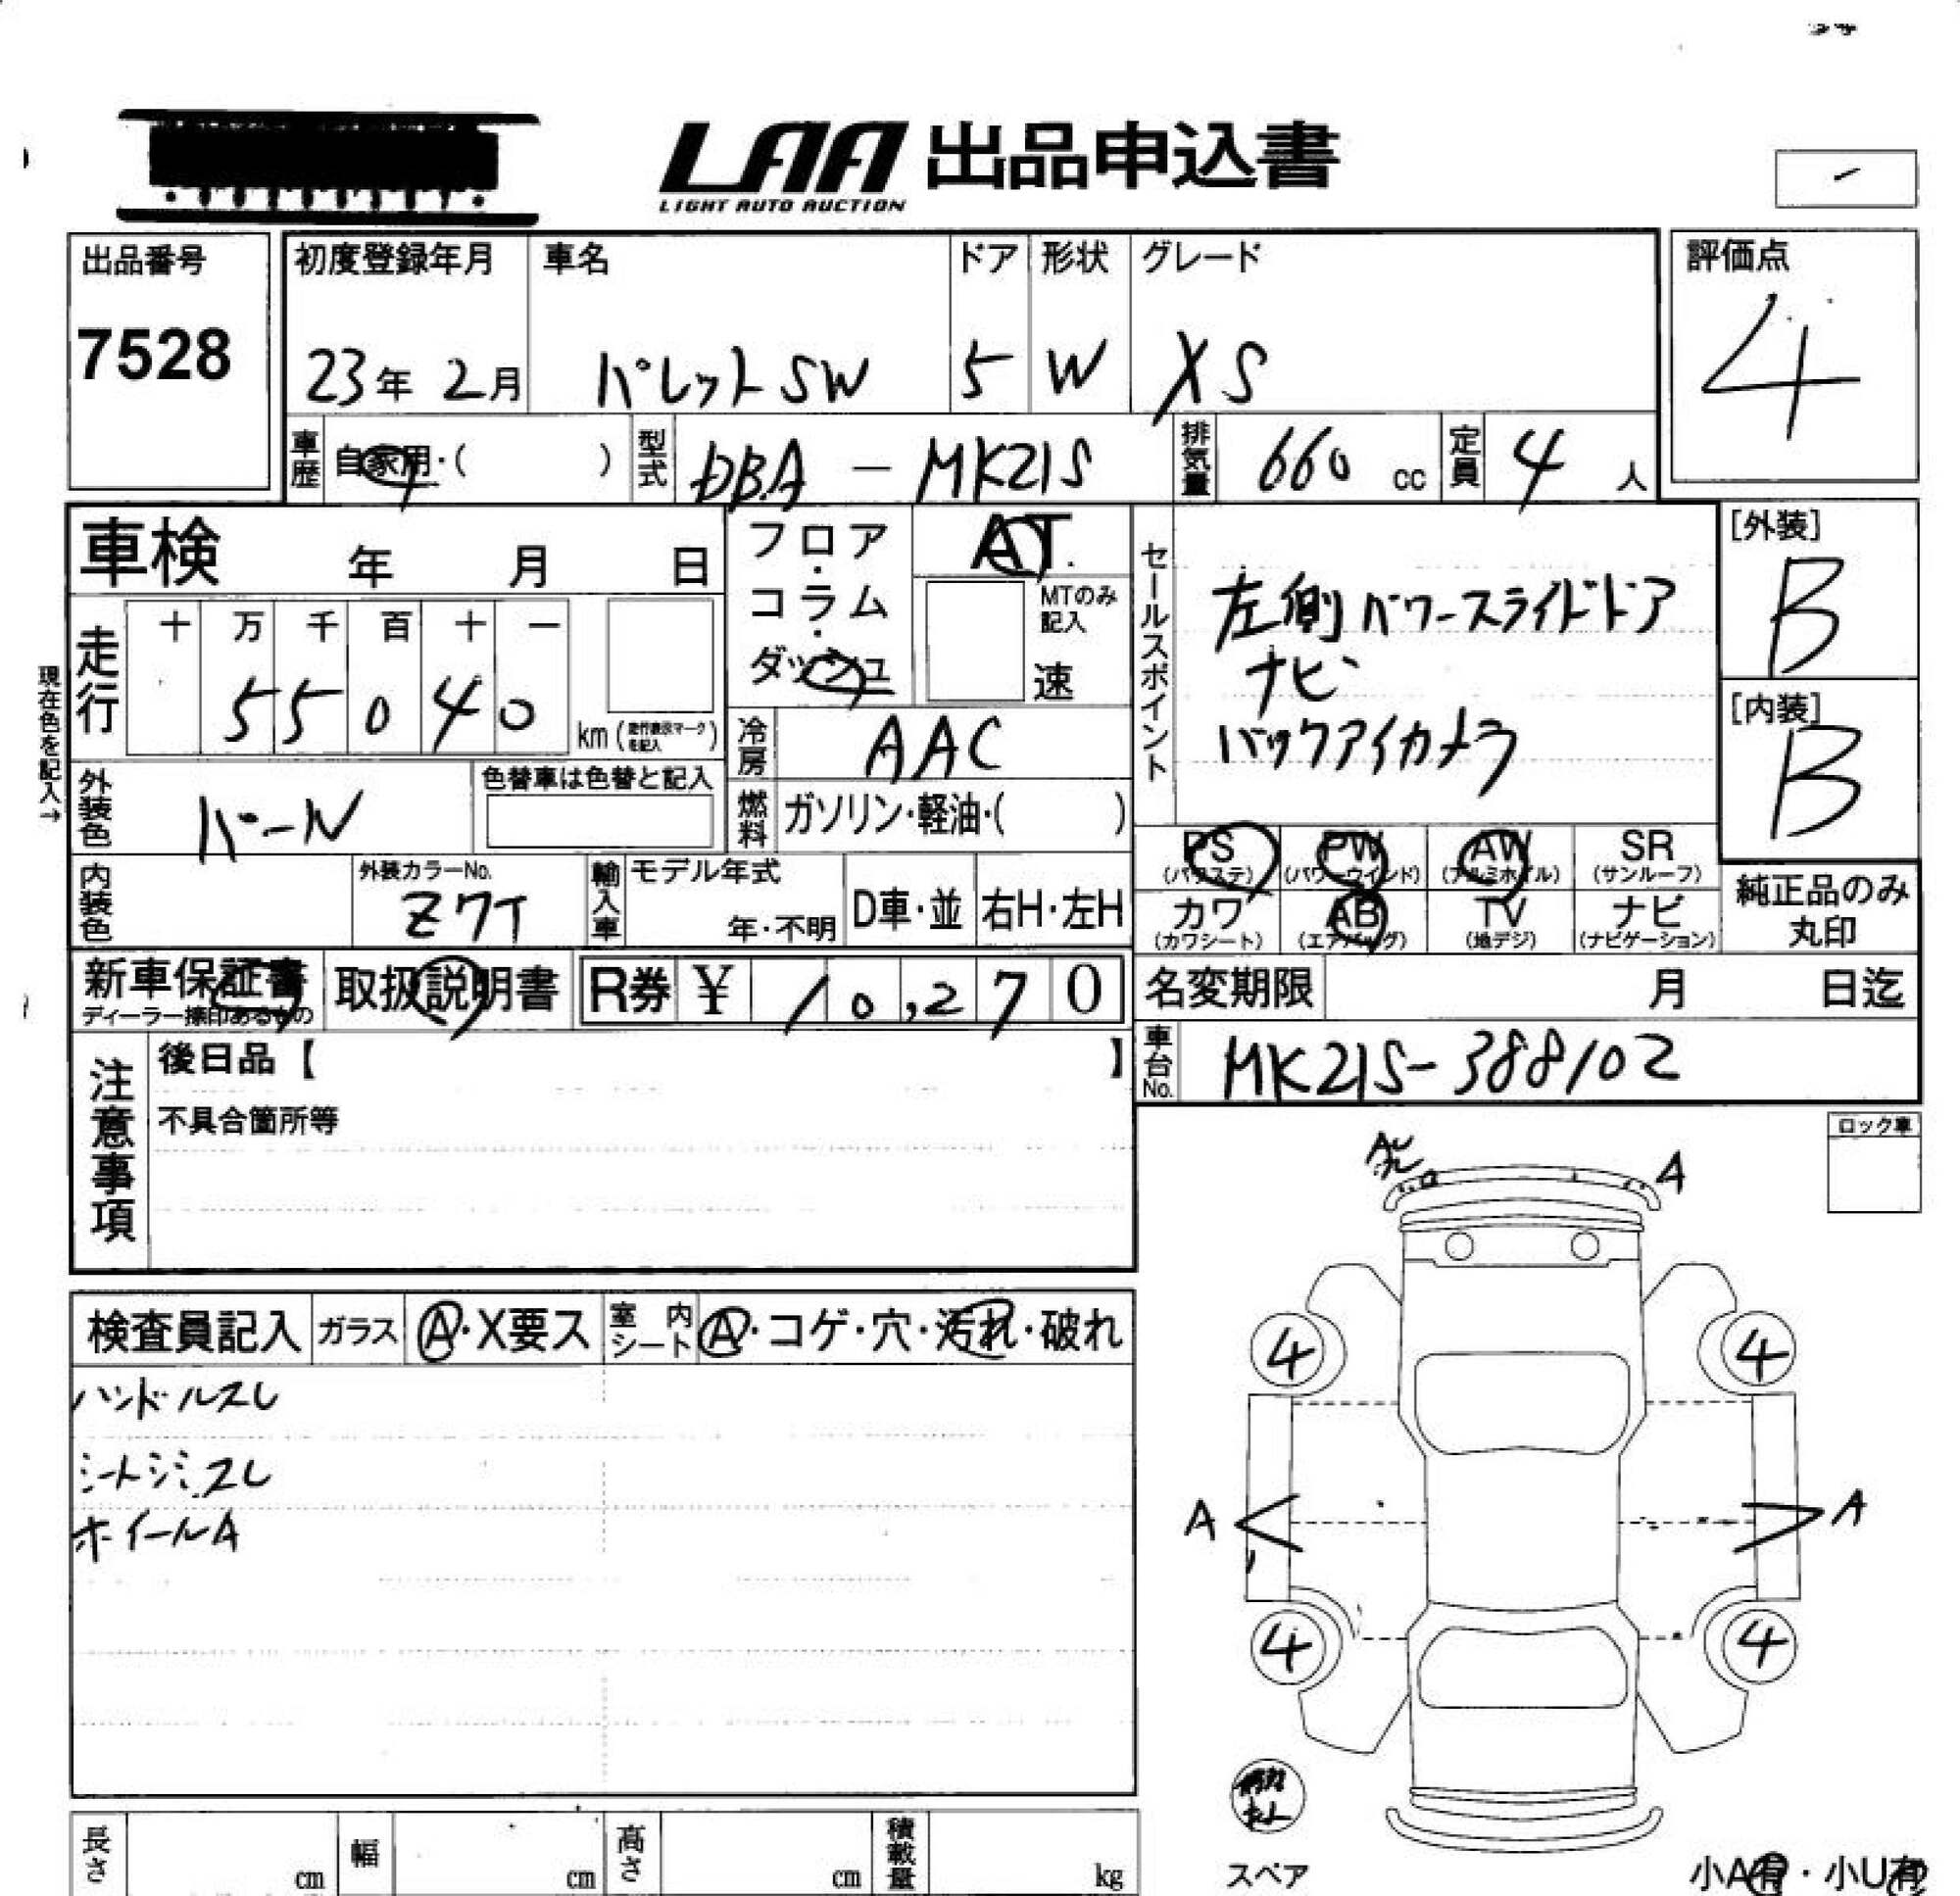 LAA 出品申込書
LIGHT AUTO AUCTION
出品番号
7528
初度登録年月 車名 ドア 形状 グレード
23年 2月 パレットSW 5 W XS
評価点
4
車歴 自家用・( ) 型式 DBA - MK21S 排気量 660 cc 定員 4 人
車検 年 月 日
フロア・コラム・ダッシュ
AT
MTのみ記入
速
セールスポイント
左側パワースライドドア
ナビ
バックアイカメラ
[外装]
B
[内装]
B
現在色を記入→
走行 十 万 千 百 十 一
55040
km (走行表示マークを記入)
冷房 AAC
外装色 パール
色替車は色替と記入
燃料 ガソリン・軽油・( )
PS (パワステ) PW (パワーウインド) AW (アルミホイル) SR (サンルーフ)
カワ (カワシート) AB (エアバッグ) TV (地デジ) ナビ (ナビゲーション)
純正品のみ丸印
内装色 外装カラーNo. Z7T 輸入車 モデル年式 年・不明 D車・並 右H・左H
新車保証書 ディーラー捺印あるもの 取扱説明書 R券 ¥ 10,270
名変期限 月 日迄
車台No. MK21S-388102
注意事項
後日品【 】
不具合箇所等
ロック車
検査員記入 ガラス A・X要ス 室内シート A・コゲ・穴・汚れ・破れ
ハンドルスレ
シートシミ.スレ
ホイールA
A
4 4
A A
4 4
スペア
小A有・小U有
長さ cm 幅 cm 高さ cm 積載量 kg